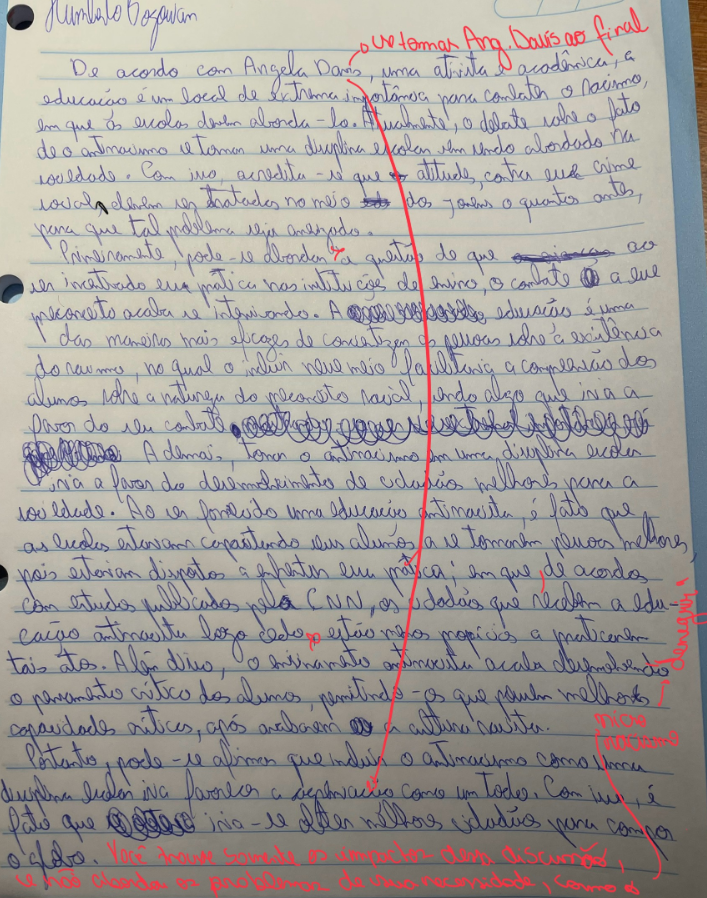 Humberto
retomar Ang. Davis ao final
De acordo com Angela Davis, uma ativista e acadêmica, a
educação é um local de extrema importância para combater o racismo,
em que as escolas devem aborda-lo. Atualmente, o debate sobre o fato
de o antirracismo se tornar uma disciplina escolar vem sendo abordado na
sociedade. Com isso, acredita-se que atitudes, contra esse crime
social, devem ser tratadas no meio dos jovens o quantos antes,
para que tal problema seja amenizado.
Primeiramente, pode-se abordar a questão de que ao
ser incetivado essa prática nas instituições de ensino, o combate a esse
preconceito acaba se intensificando. A educação é uma
das maneiras mais eficazes de concietizar as pessoas sobre a existência
do racismo, no qual o incluir nesse meio facilitaria a compreensão dos
alunos sobre a natureza do preconceito racial, sendo algo que iria a
favor do seu combate.
Ademais, tornar o antirracismo em uma disciplina escolar
iria a favor do desenvolvimento de cidadãos melhores para a
sociedade. Ao ser fornecido uma educação antirracista, é fato que
as escolas estariam capacitando seus alunos a se tornarem pessoas melhores,
pois estariam dispostos a enfrentar essa prática; em que, de acordos
com estudos publicados pela CNN, os cidadãos que recebem a edu-
cação antirracista logo cedo, estão menos propícios a praticarem
tais atos. Além disso, o ensinamento antirracista acaba desenvolvendo
o pensamento crítico dos alunos, permitindo-os que possuem melhores
capacidades críticas, após acabarem a cultura racista.
denegrir
micro
racismo
Portanto, pode-se afirmar que incluir o antirracismo como uma
disciplina escolar iria favorecer a como um todo. Com isso, é
fato que iria-se obter melhores cidadãos para compor
o globo. Você trouxe somente os impactos dessa discussão,
se não abordar os problemas da sua necessidade, como o